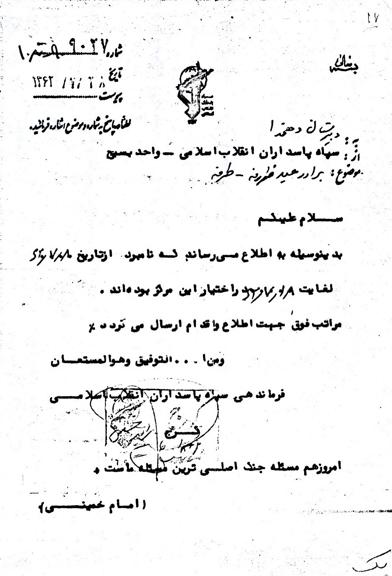 ۱۷
بسمه تعالی
شماره ۹۰۲۷
تاریخ ۱۳۶۲/
پیوست
لطفاً در پاسخ به شماره و موضوع اشاره فرمائید.
به: دبیرستان دهخدا
از: سپاه پاسداران انقلاب اسلامی - واحد بسیج
موضوع: برادر
سلام علیکم
بدینوسیله به اطلاع میرساند که نامبرد از تاریخ
لغایت در اختیار این مرکز بوده‌اند.
مراتب فوق جهت اطلاع و اقدام ارسال می گردد٪
ومن ا... التوفیق و هوالمستعان
فرماندهی سپاه پاسداران انقلاب اسلامی
کرج
امروز هم مسئله جنگ اصلی ترین مسئله ماست.
(امام خمینی)